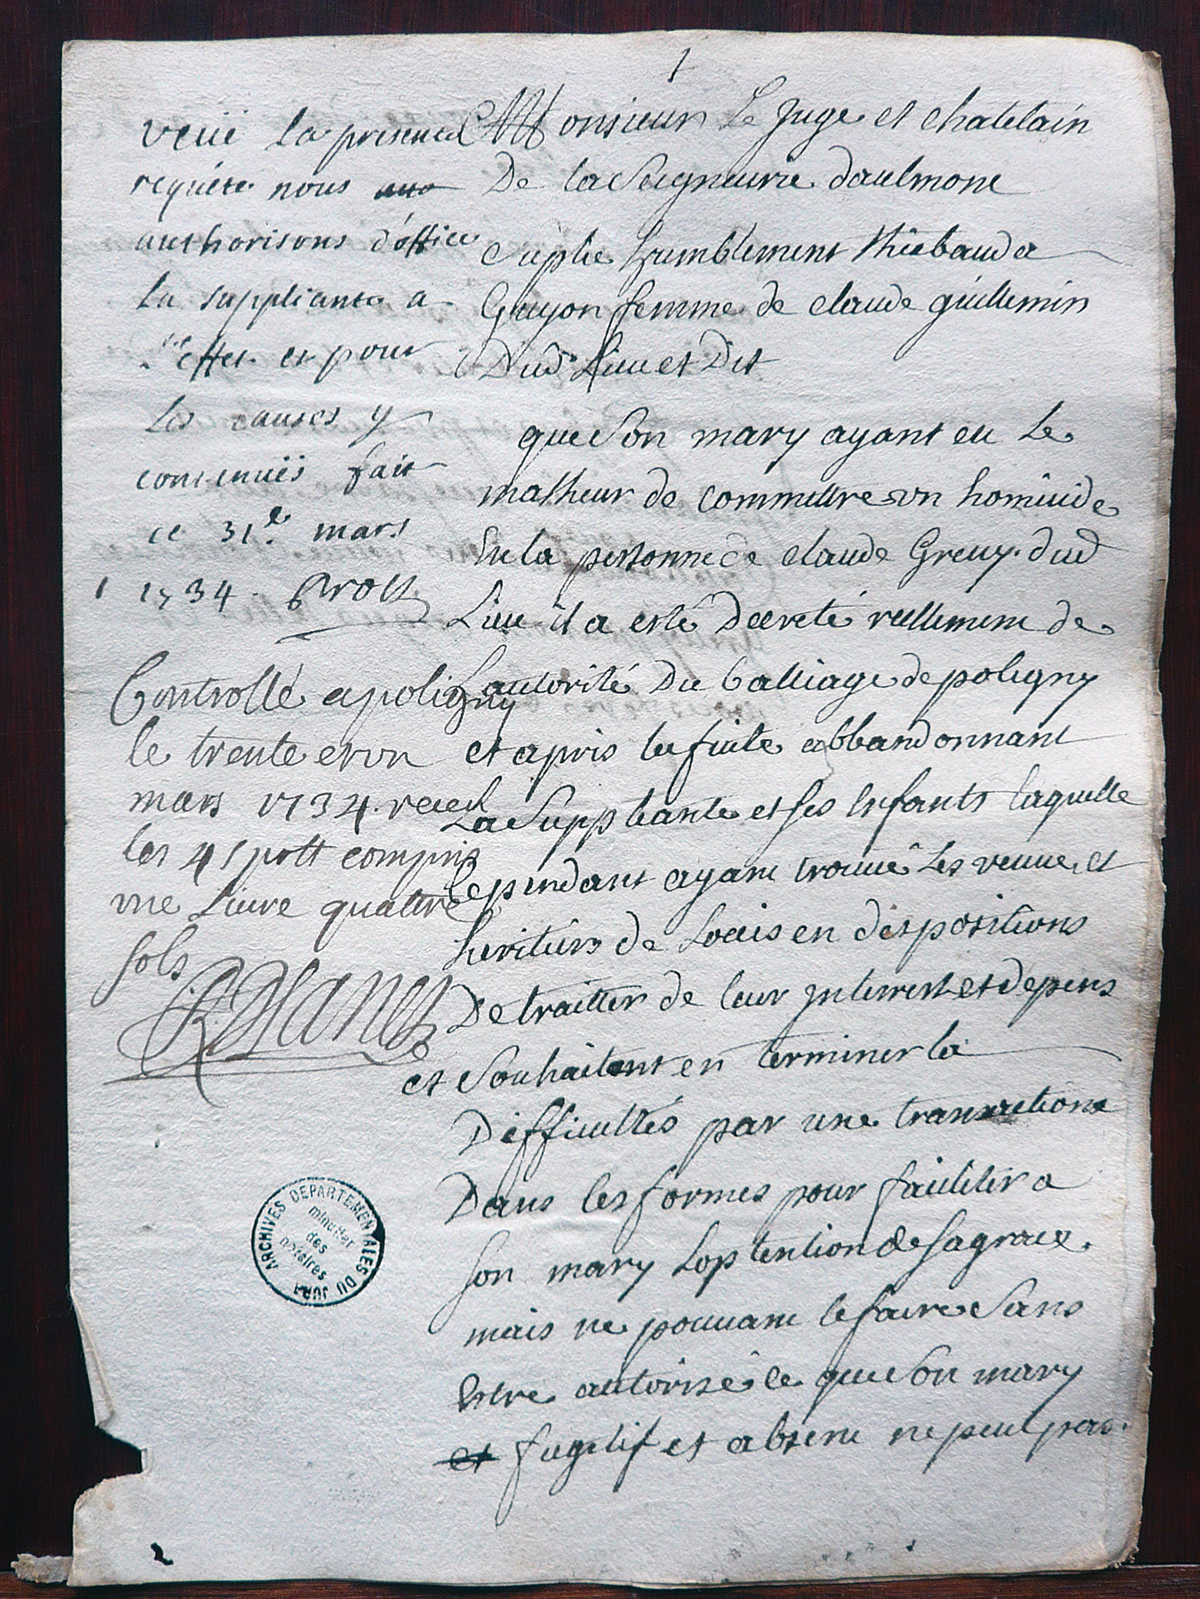 1
Monsieur Le Juge et chatelain
De la Seigneurie daulmone
Suplie humblement thiebauda
Guyon femme de claude guillemin
Dud Lieu et Dit
que Son mary ayant eu Le
malheur de Commettre un homicide
En la personne de claude Greuy dud
Lieu il a esté Decreté reellement de
autorité Du balliage de poligny
et apris la fuite abbandonnant
La Suppliante et ses Enfants laquelle
Cependant ayant trouué Les veuue et
heritiers de Locis en dispositions
De traitter de leur Interrest et depens
et Souhaitant en terminer la
Difficultés par une transactions
Dans les formes pour faciliter a
son mary Loptention de sa grace.
mais ne pouuant le faire Sans
Estre autorisé ce que Son mary
et fugitif et absent ne peut pas.
veüe la presente
requete nous
authorisons d'office
la suppliante a
l'effet et pour
les causes y
contenuës fait
ce 31e. mars
1 1734. Prost
Controllé a poligny
le trente et un
mars 1734. receu
les 4 s pott compris
une Liure quattre
sols
ARCHIVES DEPARTEMENTALES DU JURA
minutier
des
notaires
2